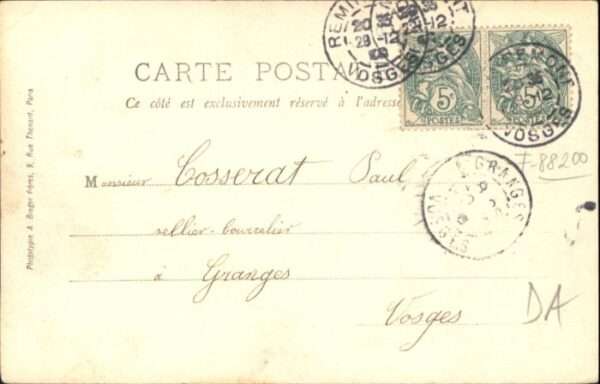 REMIREMONT
20
29 -12
VOSGES
CARTE POSTALE
Ce côté est exclusivement réservé à l'adresse
5
POSTES
5
POSTES
REMIREMONT
VOSGES
F-88200
Monsieur Cosserat Paul
sellier-bourrelier
à Granges
Vosges
GRANGES
VOSGES
DA
Phototypie A. Bergeret, 9, Rue Thénard, Paris